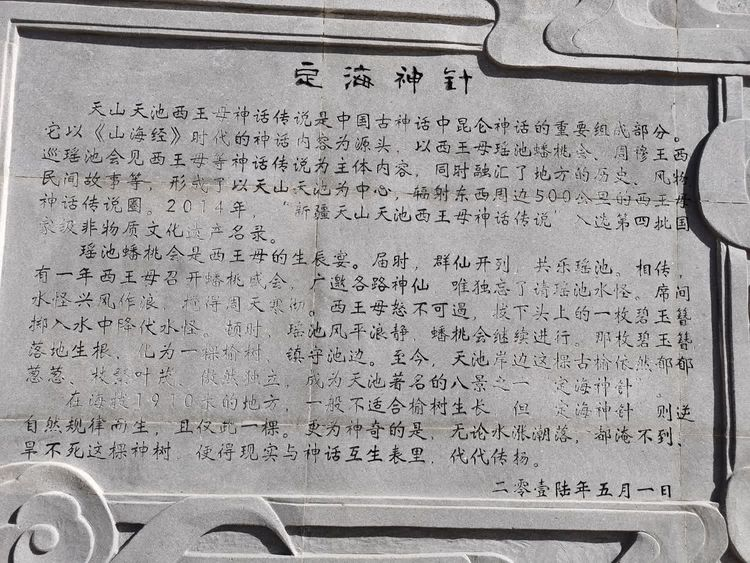 定海神针
天山天池西王母神话传说是中国古神话中昆仑神话的重要组成部分。
它以《山海经》时代的神话内容为源头，以西王母瑶池蟠桃会、周穆王西
巡瑶池会见西王母等神话传说为主体内容，同时融汇了地方的历史、风物
民间故事等，形成了以天山天池为中心，辐射东西周边500公里的西王母
神话传说圈。2014年，“新疆天山天池西王母神话传说”入选第四批国
家级非物质文化遗产名录。
瑶池蟠桃会是西王母的生辰宴。届时，群仙开列，共乐瑶池。相传，
有一年西王母召开蟠桃盛会，广邀各路神仙，唯独忘了请瑶池水怪。席间
水怪兴风作浪，搅得周天寒彻。西王母怒不可遏，拔下头上的一枚碧玉簪
掷入水中降伏水怪。顿时，瑶池风平浪静，蟠桃会继续进行。那枚碧玉簪
落地生根，化为一棵榆树，镇守池边。至今，天池岸边这棵古榆依然郁郁
葱葱、枝繁叶茂、傲然独立，成为天池著名的八景之一“定海神针”。
在海拔1910米的地方，一般不适合榆树生长，但“定海神针”则逆
自然规律而生，且仅此一棵。更为神奇的是，无论水涨潮落，都淹不到、
旱不死这棵神树，使得现实与神话互生表里，代代传扬。
二零壹陆年五月一日